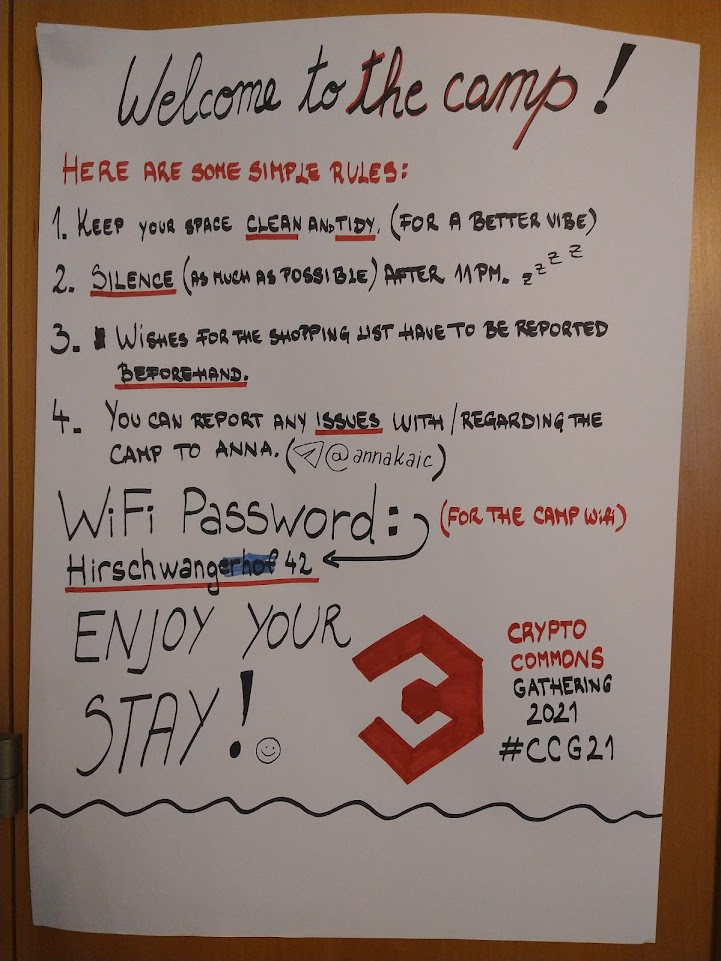 Welcome to the camp!
HERE ARE SOME SIMPLE RULES:
1. KEEP YOUR SPACE CLEAN AND TIDY. (FOR A BETTER VIBE)
2. SILENCE (AS MUCH AS POSSIBLE) AFTER 11PM. zzzz
3. WISHES FOR THE SHOPPING LIST HAVE TO BE REPORTED
BEFOREHAND.
4. YOU CAN REPORT ANY ISSUES WITH/REGARDING THE
CAMP TO ANNA. (@annakaic)
WiFi Password:
(FOR THE CAMP Wifi)
Hirschwangerhof 42
ENJOY YOUR
STAY!
CRYPTO
COMMONS
GATHERING
2021
#CCG21